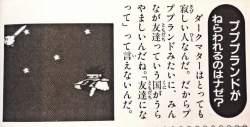 ププブランドが
ねらわれるのはナゼ？
ダークマターはとっても
寂しい人なんだ。だからプ
ププランドみたいに、みん
なが友達っていう国がうら
やましいんだね。「友達にな
って」って言えないんだ。